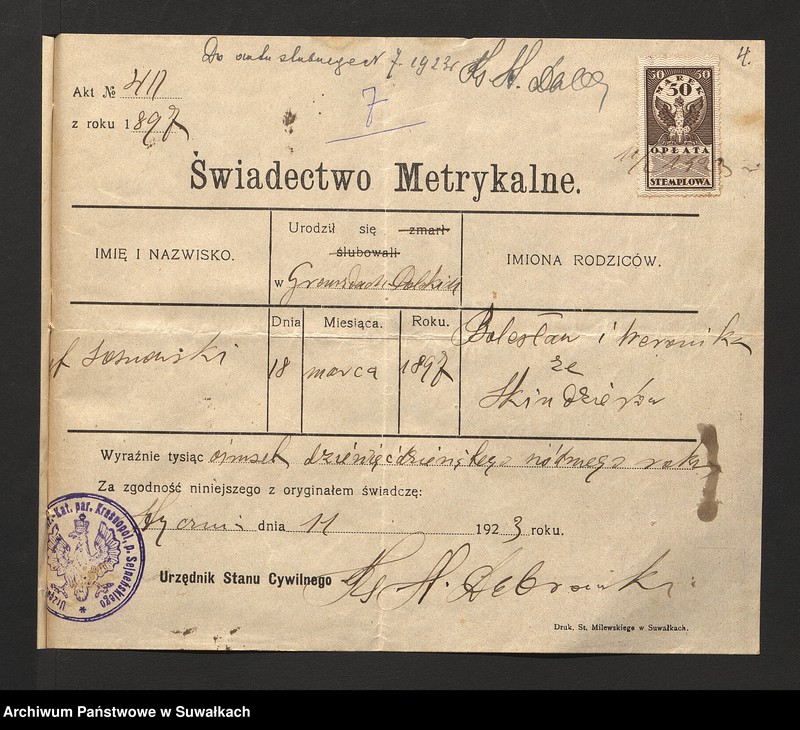 Do aktu ślubnego N 7. 1923r Ks. H.
4.
Akt №
z roku 1897
7
50 50
MAREK
50
OPŁATA
STEMPLOWA
Świadectwo Metrykalne.
IMIĘ I NAZWISKO.
Urodził się zmarł
ślubowali
w
IMIONA RODZICÓW.
Dnia Miesiąca. Roku.
Sosnowski
18 marca 1897
Bolesław i Weronika
ze
Skindzierów
Wyraźnie tysiąc ośmset dziewięćdziesiątego siódmego roku
Za zgodność niniejszego z oryginałem świadczę:
dnia 11 1923 roku.
Kat. par. Krasnopol, p. Sejneńskiego
Urzędnik Stanu Cywilnego Ks. H.
Druk. St. Milewskiego w Suwałkach.
Archiwum Państwowe w Suwałkach